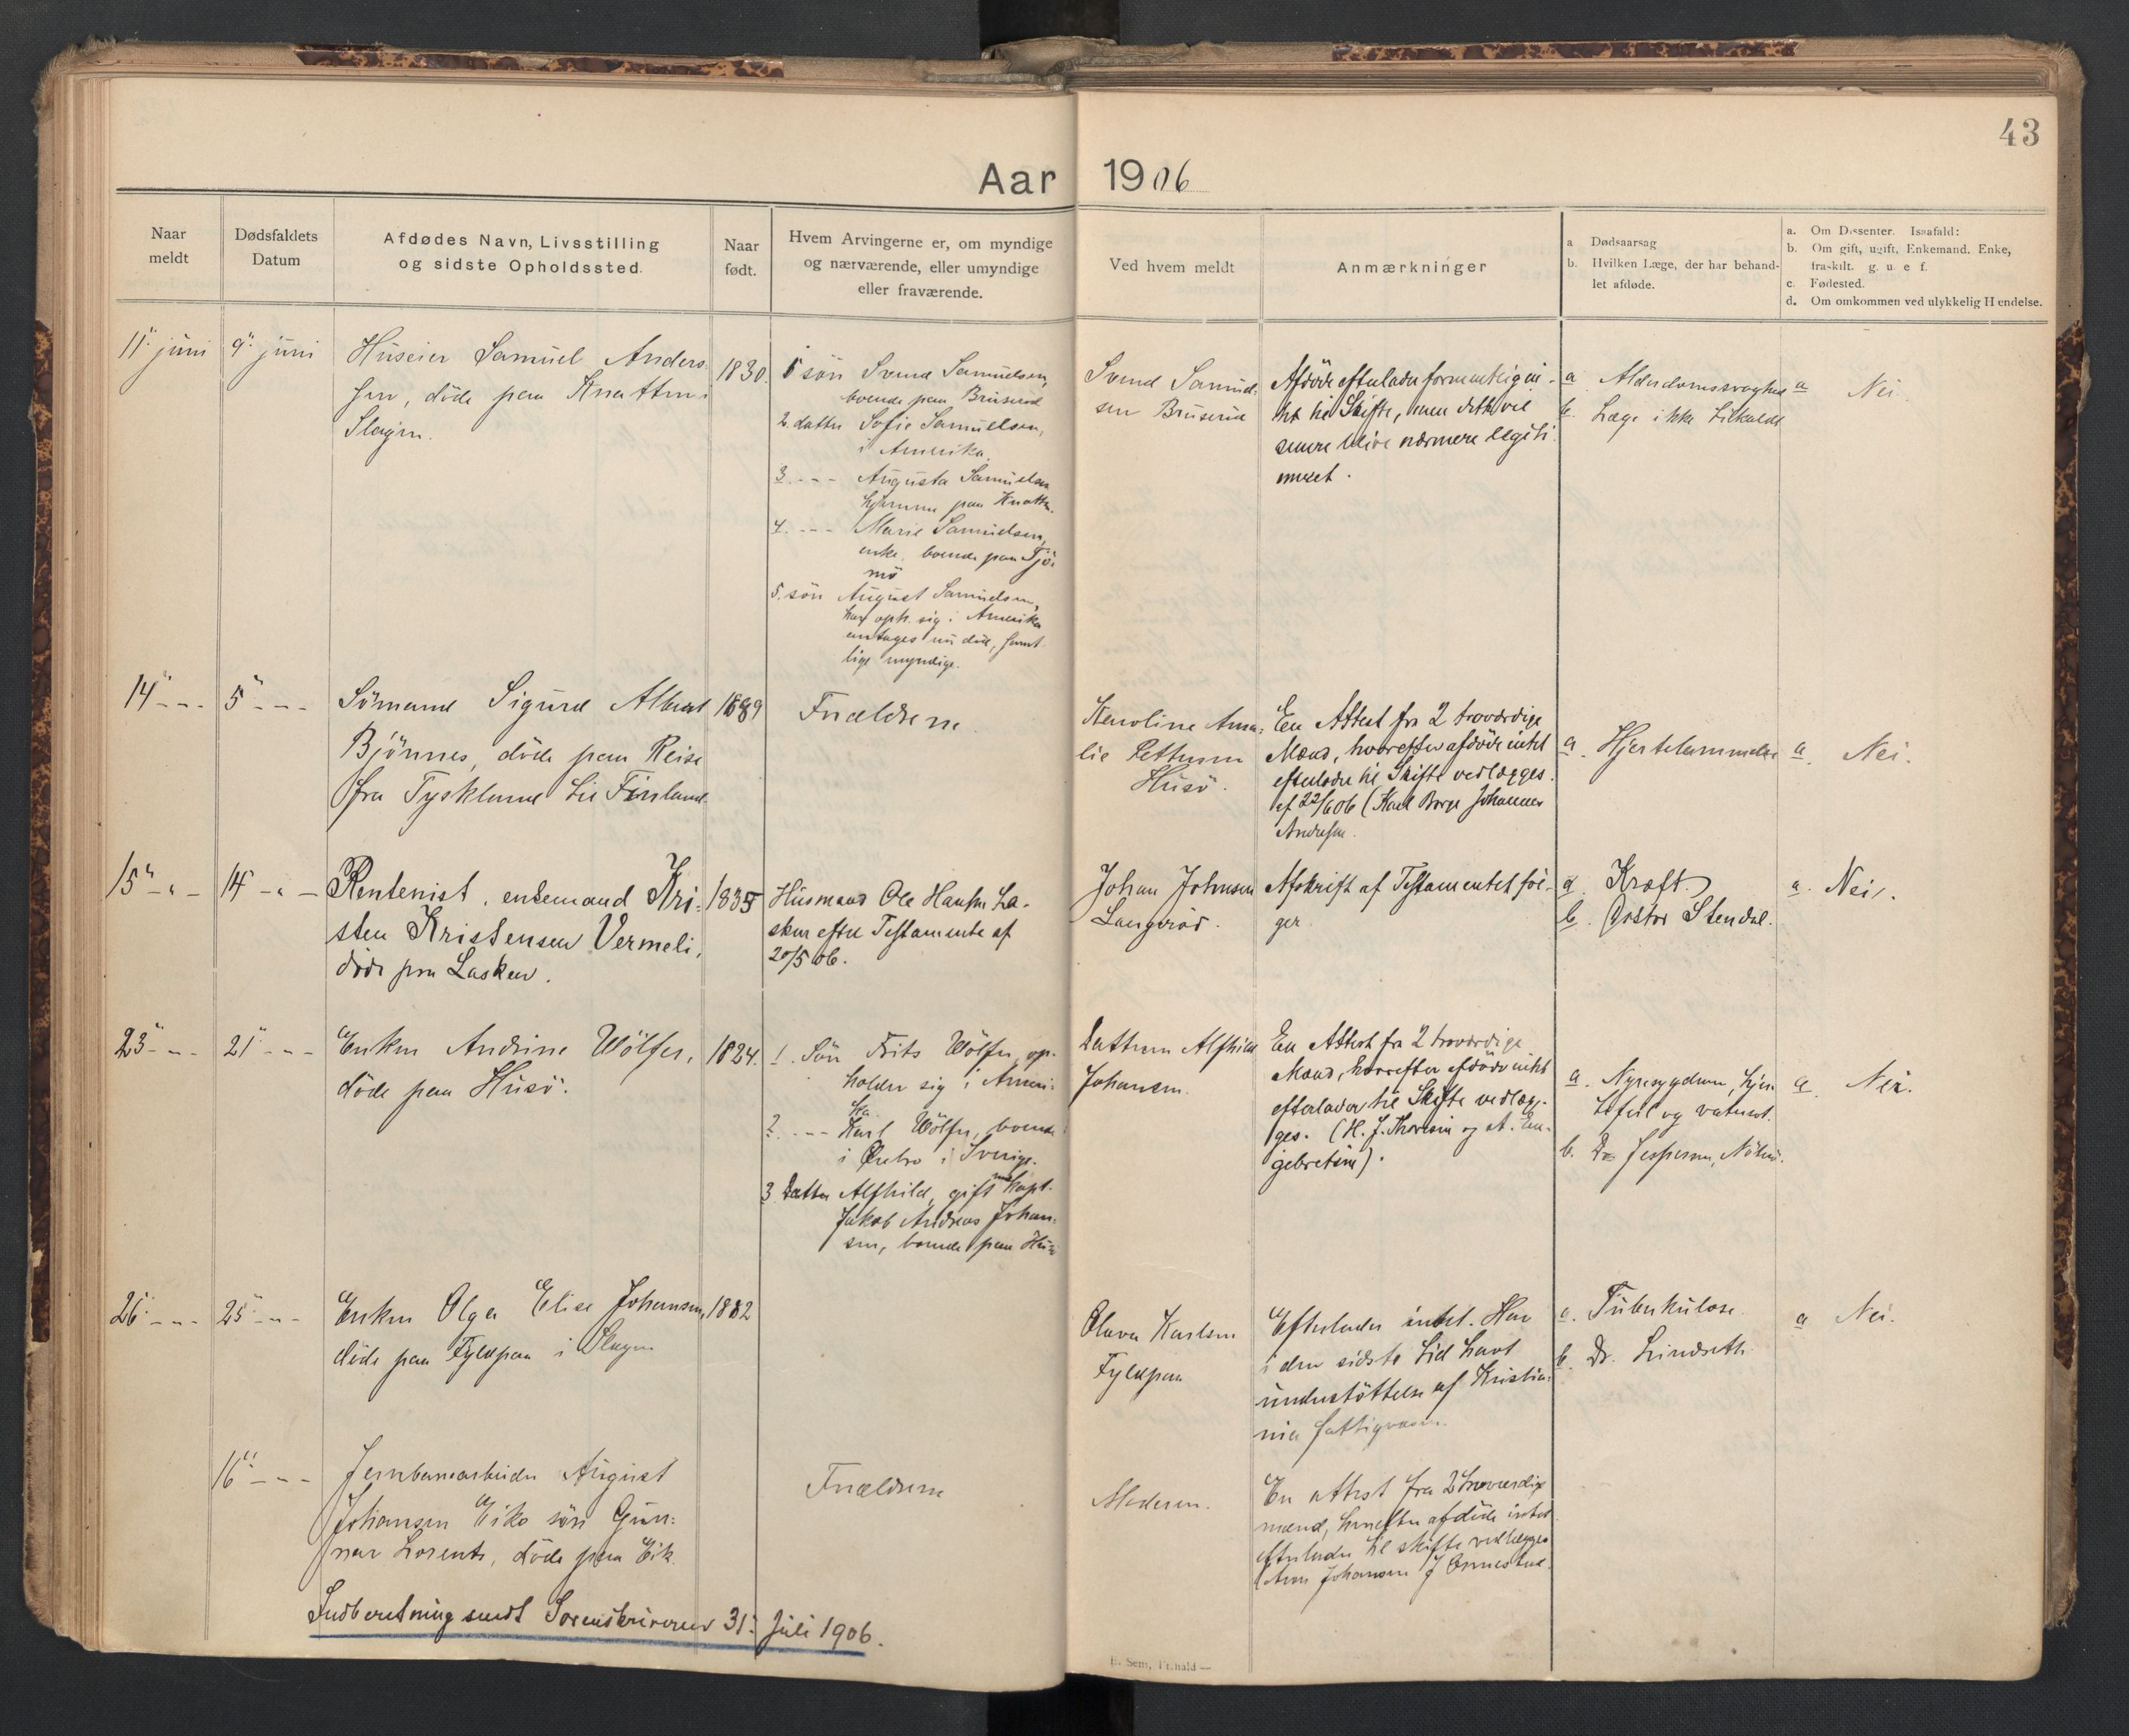 43
Aar 1906
Naar meldt
Dødsfaldets Datum
Afdødes Navn, Livsstilling og sidste Opholdssted.
Naar født.
Hvem Arvingerne er, om myndige og nærværende, eller umyndige eller fraværende.
Ved hvem meldt
Anmærkninger
a Dødsaarsag
b. Hvilken Læge, der har behandlet afdøde.
a. Om Dissenter. Isaafald:
b. Om gift, ugift, Enkemand. Enke, fraskilt. g. u. e f.
c. Fødested.
d. Om omkommen ved ulykkelig Hændelse.
11" juni
9" juni
Huseier Samuel Anders
sen, döde paa Knatten i
Slagen.
1830.
1 sön Svend Samuelsen,
boende paa Bruserud
2. datter Sofie Samuelsen,
i Amerika.
3. --- Augusta Samuelsen
hjemme paa Knatten.
4. --- Marie Samuelsen,
enke. boende paa Tjö-
mö
5. sön August Samuelsen,
har oph. sig i Amerika
antages nu död, samt
lige myndige.
Svend Samuel-
sen Bruserud
Afdöde efterlader formentlig in-
tet til Skifte, men dette vil
senere blive nærmere legiti
meret.
a Alderdomssvaghed
b. Læge ikke tilkaldt
a Nei.
14" ---
5" ---
Sömand Sigurd Albert
Bjönnes, döde paa Reise
fra Tyskland til Finland.
1889
Forældrene
Karoline Ama-
lie Pettersen
Husö.
En Attest fra 2 troværdige
Mænd, hvorefter afdöde intet
efterlader til Skifte vedlægges.
af 22/6 06 (Karl Borge Johannes
Andresen.
a. Hjertelammelse
a. Nei.
15" - " -
14 - " -
Rentenist, enkemand Kri-
sten Kristensen Vermeli,
döde paa Lasken.
1835
Husmand Ole Hansen La-
sken efter Testamente af
20/5 06.
Johan Johnsen
Langviod.
Afskrift af Testamentet föl-
ger
a. Kræft.
b. Doktor Stendal.
a. Nei.
23" ---
21" ---
Enken Andrine Wölfer,
döde paa Husö.
1824.
1. Sön Frits Wölfer, op-
holder sig i Ameri-
ka
2. --- Karl Wölfer, boende
i Örebro i Sverige.
3 Datter Alfhild, gift med Kapt.
Jakob Andreas Johan-
sen, boende paa Husö
Datteren Alfhild
Johansen.
En Attest fra 2 troværdige
Mænd, hvorefter afdöde intet
efterlader til Skifte vedlæg-
ges. (H. J. Thoresen og A. En-
gebretsen).
a. Nyresygdom, hjer
tefeil og vatersot.
b. Dr Jespersen, Nöterö.
a. Nei.
26" ---
25" ---
Enken Olga Elise Johansen,
döde paa Fyldpaa i Slagen
1882
Olava Karlsen
Fyldpaa
Efterlader intet. Har
i den sidste tid havt
understöttelse af Kristia-
nia fattigvæsen.
a. Tuberkulose.
b. Dr. Lindseth
a Nei.
16" ---
Jernbanearbeider August
Johansen Eiks sön Gun-
nar Lorents, döde paa Eik.
Forældrene
Moderen.
En attest fra 2 troværdige
mænd, hvorefter afdöde intet
efterlader til skifte vedlægges
(Aron Johansen J Ormestad
Indberetning sendt Sorenskriveren 31. Juli 1906.
E. Sem, Fr.hald —